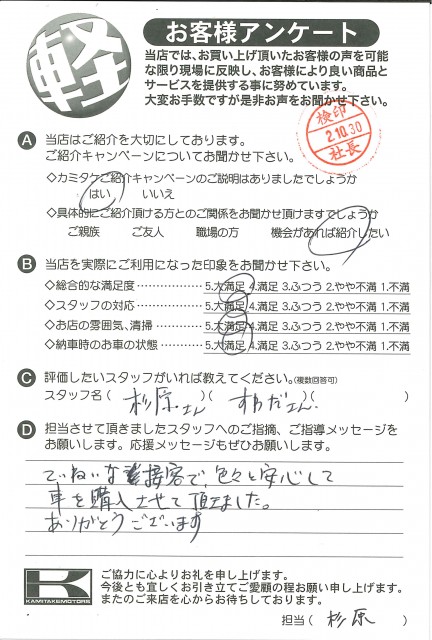 軽
お客様アンケート
当店では、お買い上げ頂いたお客様の声を可能
な限り現場に反映し、お客様により良い商品と
サービスを提供する事に努めています。
大変お手数ですが是非お声をお聞かせ下さい。
検印
2.10.30
社長
A 当店はご紹介を大切にしております。
ご紹介キャンペーンについてお聞かせ下さい。
◇カミタケご紹介キャンペーンのご説明はありましたでしょうか
はい いいえ
◇具体的にご紹介頂ける方とのご関係をお聞かせ頂けますでしょうか
ご親族 ご友人 職場の方 機会があれば紹介したい
B 当店を実際にご利用になった印象をお聞かせ下さい。
◇総合的な満足度……………5.大満足 4.満足 3.ふつう 2.やや不満 1.不満
◇スタッフの対応……………5.大満足 4.満足 3.ふつう 2.やや不満 1.不満
◇お店の雰囲気、清掃…………5.大満足 4.満足 3.ふつう 2.やや不満 1.不満
◇納車時のお車の状態…………5.大満足 4.満足 3.ふつう 2.やや不満 1.不満
C 評価したいスタッフがいれば教えてください。(複数回答可)
スタッフ名( 杉原さん )( すわださん )( )
D 担当させて頂きましたスタッフへのご指摘、ご指導メッセージを
お願いします。応援メッセージもぜひお願いします。
ていねいな接客で、色々と安心して
車を購入させて頂きました。
ありがとうございます
K
KAMITAKEMOTORS
ご協力に心よりお礼を申し上げます。
今後とも宜しくお引き立てご愛顧の程お願い申し上げます。
またのご来店を心からお待ちしております。
担当( 杉原 )